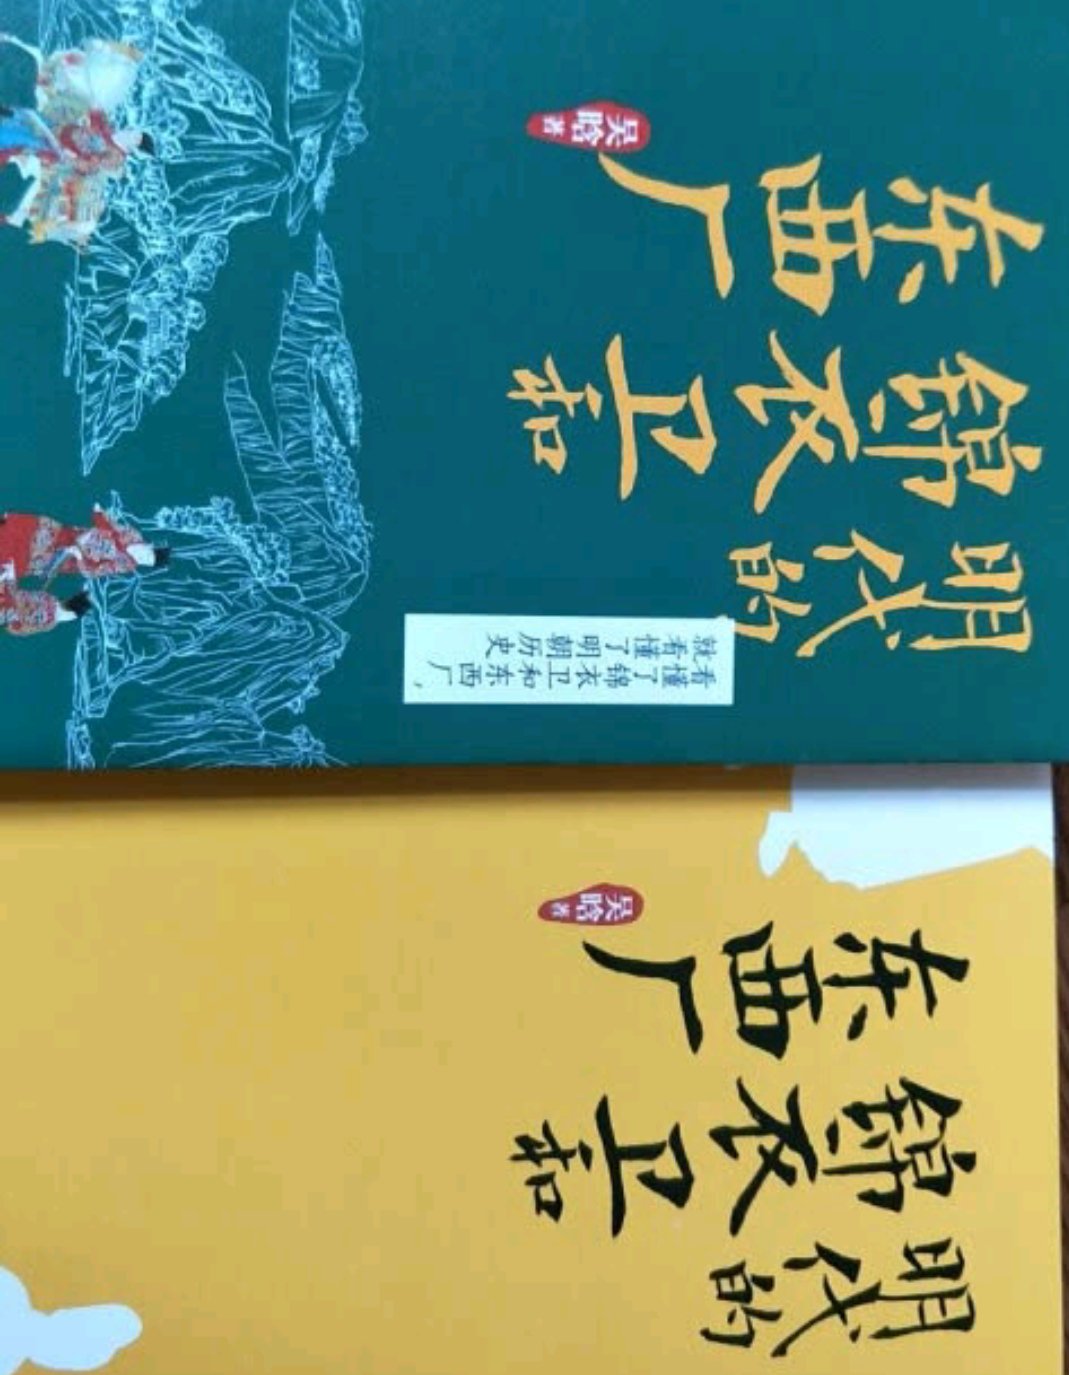 明代的
锦衣卫和
东西厂
吴晗 著
看懂了锦衣卫和东西厂，
就看懂了明朝历史
明代的
锦衣卫和
东西厂
吴晗 著